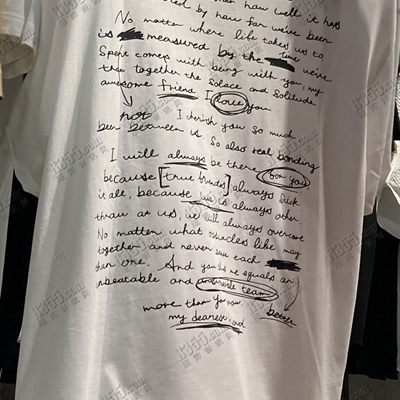 how well it has
by how far we've been
No matter where life takes us to
is measured by the time we've
Spent comes with being with you, my
that together the solace and solitude
awesome friend I love you
not I cherish you so much
been between us so also real bonding
I will always be there for you
because [true friends] always stick
it all, because life is always other
throw at us, we will always overcome
No matter what obstacles like may
together and never see each
than one. And you and me equals an
unbeatable and team
more than you now, better
my dearest friend